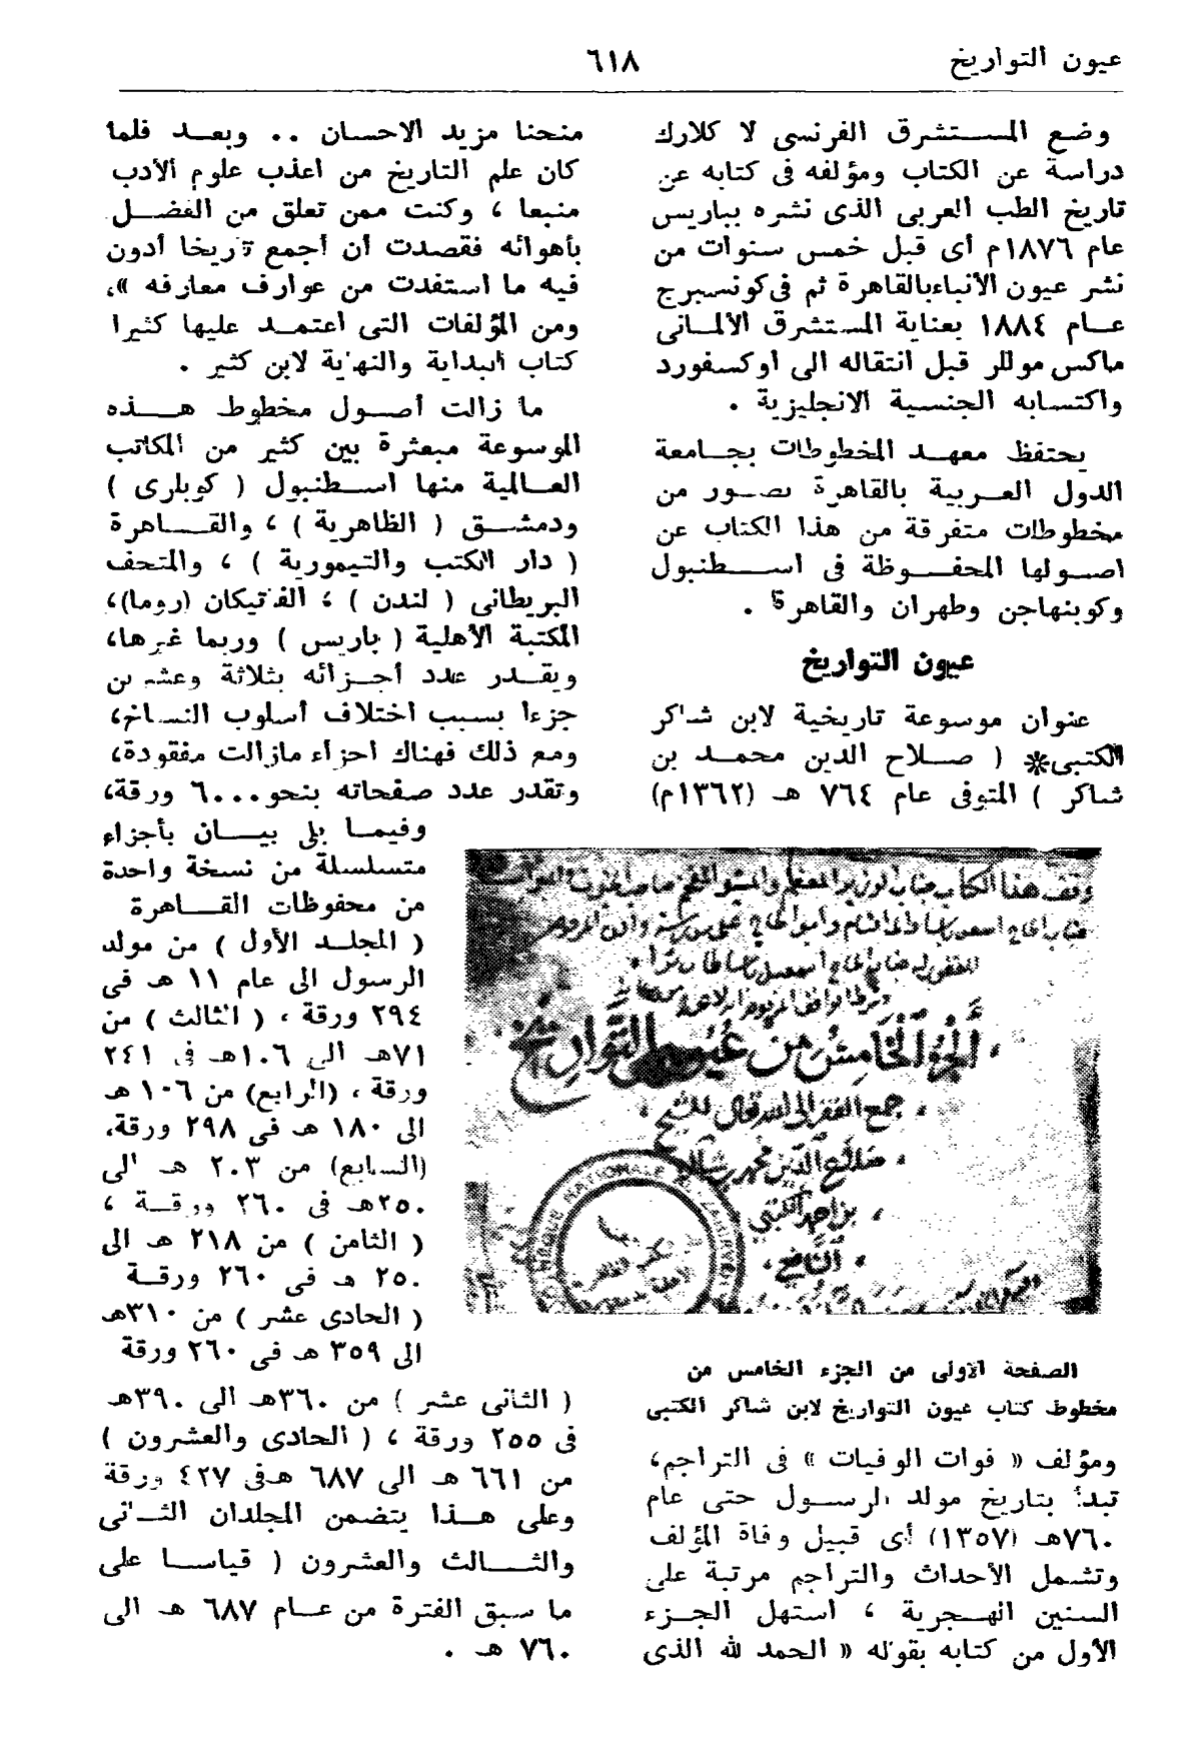 عيون التواريخ
٦١٨
وضع المستشرق الفرنسى لا كلارك
دراسة عن الكتاب ومؤلفه فى كتابه عن
تاريخ الطب العربى الذى نشره بباريس
عام ١٨٧٦م أى قبل خمس سنوات من
نشر عيون الأنباءبالقاهرة ثم فى كونسبرج
عام ١٨٨٤ بعناية المستشرق الألمانى
ماكس موللر قبل انتقاله الى أوكسفورد
واكتسابه الجنسية الانجليزية .
يحتفظ معهد المخطوطات بجامعة
الدول العربية بالقاهرة بصور من
مخطوطات متفرقة من هذا الكتاب عن
اصولها المحفوظة فى اسطنبول
وكوبنهاجن وطهران والقاهرة .
عيون التواريخ
عنوان موسوعة تاريخية لابن شاكر
الكتبى* ( صلاح الدين محمد بن
شاكر ) المتوفى عام ٧٦٤ هـ (١٣٦٢م)
وقف هذا الكتاب
الجزء الخامس من عيون التواريخ
جمع الفقير الى الله تعالى الشيخ
صلاح الدين محمد بن شاكر
بن احمد الكتبى
الصفحة الأولى من الجزء الخامس من
مخطوط كتاب عيون التواريخ لابن شاكر الكتبى
ومؤلف « فوات الوفيات » فى التراجم،
تبدأ بتاريخ مولد الرسول حتى عام
٧٦٠هـ (١٣٥٧) أى قبيل وفاة المؤلف
وتشمل الأحداث والتراجم مرتبة على
السنين الهجرية ، استهل الجزء
الأول من كتابه بقوله « الحمد لله الذى
منحنا مزيد الاحسان .. وبعد فلما
كان علم التاريخ من أعذب علوم الأدب
منبعا ، وكنت ممن تعلق من الفضل
بأهوائه فقصدت أن أجمع تاريخا أدون
فيه ما استفدت من عوارف معارفه »،
ومن المؤلفات التى اعتمد عليها كثيرا
كتاب البداية والنهاية لابن كثير .
ما زالت أصول مخطوط هذه
الموسوعة مبعثرة بين كثير من المكاتب
العالمية منها اسطنبول ( كوبلرى )
ودمشق ( الظاهرية ) ، والقاهرة
( دار الكتب والتيمورية ) ، والمتحف
البريطانى ( لندن ) ، الفاتيكان (روما)،
المكتبة الأهلية ( باريس ) وربما غيرها،
ويقدر عدد أجزائه بثلاثة وعشرين
جزءا بسبب اختلاف أسلوب النساخ،
ومع ذلك فهناك أجزاء مازالت مفقودة،
وتقدر عدد صفحاته بنحو ٦٠٠٠ ورقة،
وفيما يلى بيان بأجزاء
متسلسلة من نسخة واحدة
من محفوظات القاهرة
( المجلد الأول ) من مولد
الرسول الى عام ١١ هـ فى
٢٩٤ ورقة ، ( الثالث ) من
٧١هـ الى ١٠٦هـ فى ٢٤١
ورقة ، (الرابع) من ١٠٦ هـ
الى ١٨٠ هـ فى ٢٩٨ ورقة،
(السابع) من ٢٠٣ هـ الى
٢٥٠هـ فى ٢٦٠ ورقة ،
( الثامن ) من ٢١٨ هـ الى
٢٥٠ هـ فى ٢٦٠ ورقة
( الحادى عشر ) من ٣١٠هـ
الى ٣٥٩ هـ فى ٢٦٠ ورقة
( الثانى عشر ) من ٣٦٠هـ الى ٣٩٠هـ
فى ٢٥٥ ورقة ، ( الحادى والعشرون )
من ٦٦١ هـ الى ٦٨٧ هـ فى ٤٢٧ ورقة
وعلى هذا يتضمن المجلدان الثانى
والثالث والعشرون ( قياسا على
ما سبق الفترة من عام ٦٨٧ هـ الى
٧٦٠ هـ .